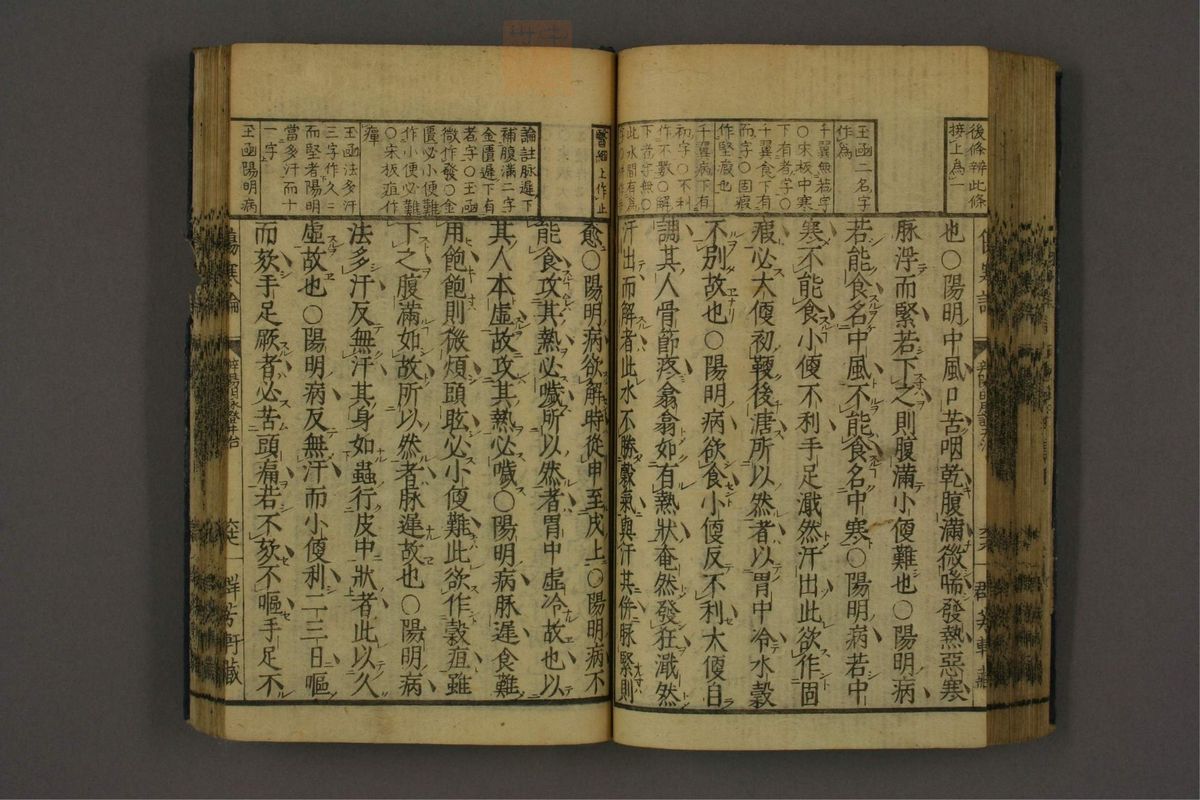 後條辨此條
接上為一
玉函二名字
作為
千翼無若字
○宋板中寒
下有者字○
千翼食下有
而字○固瘕
作堅瘕也
千翼病下有
初字○不利
作不數○解
下者字無○
此水間有為
也○陽明中風口苦咽乾腹滿微喘發熱惡寒
脉浮而緊若下之則腹滿小便難也○陽明病
若能食名中風不能食名中寒○陽明病若中
寒不能食小便不利手足濈然汗出此欲作固
瘕必大便初鞕後溏所以然者以胃中冷水穀
不別故也○陽明病欲食小便反不利大便自
調其人骨節疼翕翕如有熱狀奄然發狂濈然
汗出而解者此水不勝穀氣與汗共併脉緊則
醫經上作止
論註脉遲下
補腹滿二字
金匱遲下有
者字○玉函
微作發○金
匱必小便難
作小便必難
○宋板疸作
癉
玉函法多汗
三字作久二
而堅者陽明
當多汗而十
一字
玉函陽明病
愈○陽明病欲解時從申至戌上○陽明病不
能食攻其熱必噦所以然者胃中虛冷故也以
其人本虛故攻其熱必噦○陽明病脉遲食難
用飽飽則微煩頭眩必小便難此欲作穀疸雖
下之腹滿如故所以然者脉遲故也○陽明病
法多汗反無汗其身如蟲行皮中狀者此以久
虛故也○陽明病反無汗而小便利二三日嘔
而欬手足厥者必苦頭痛若不欬不嘔手足不
傷寒論
群芳軒藏